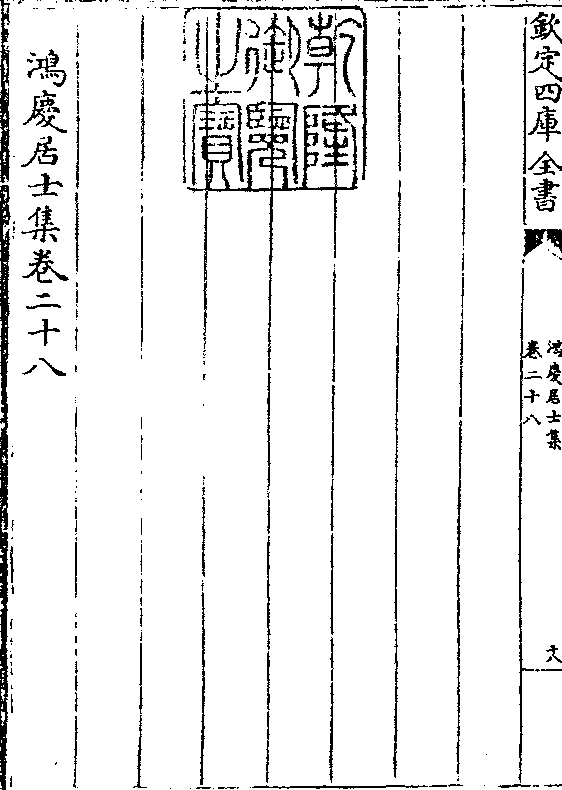 欽定四庫全書
鴻慶居士集
卷二十八
十八
乾隆
御覽
之寶
鴻慶居士集卷二十八